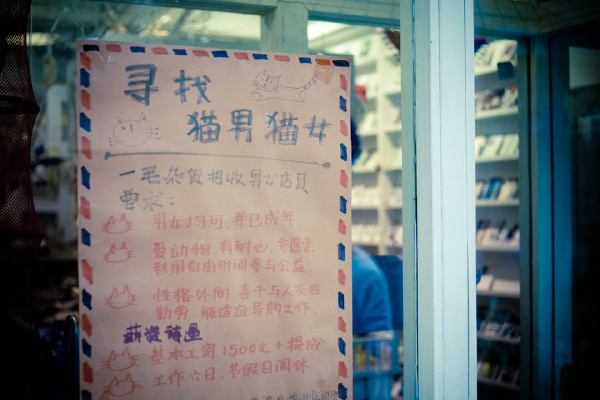 寻找
猫男猫女
一毛杂货招收男女店员
要求：
男女均可，并已成年.
爱动物.有耐心.并愿意
利用自由时间参与公益.
性格外向.善于与人交往
勤劳.能适应导购工作.
薪资待遇
基本工资1500元+提成
工作六日.节假日调休